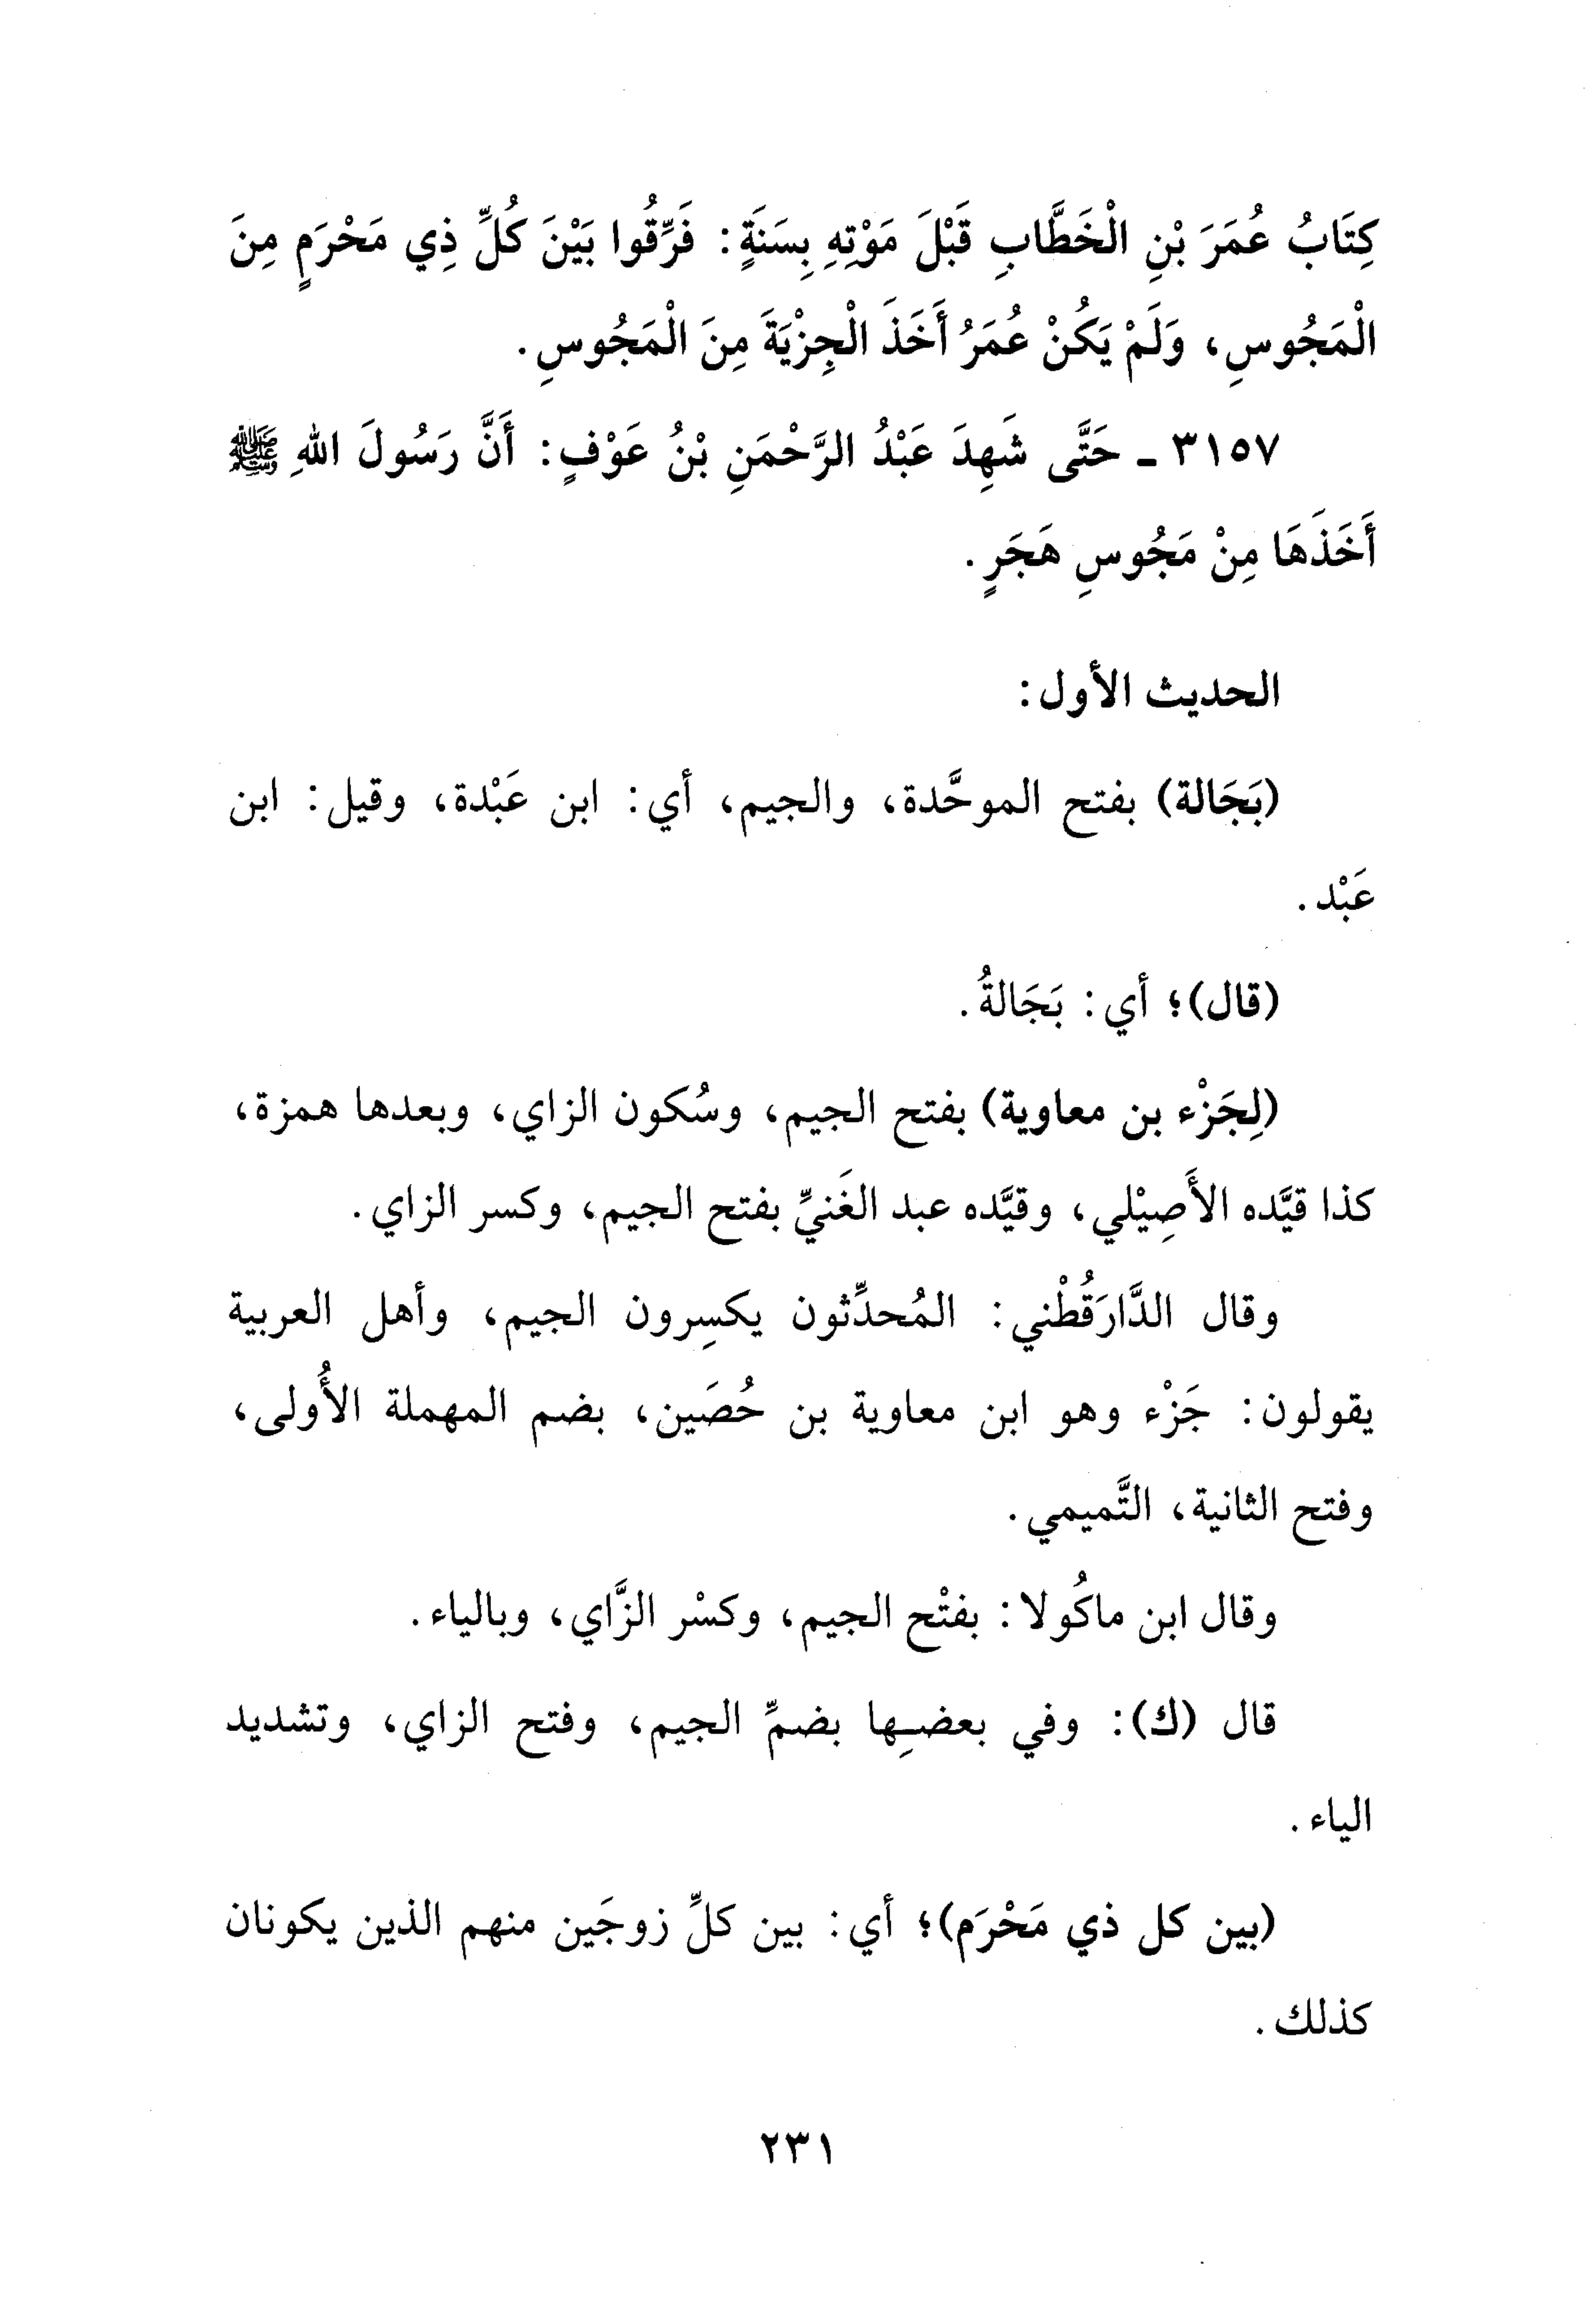 كِتَابُ عُمَرَ بْنِ الْخَطَّابِ قَبْلَ مَوْتِهِ بِسَنَةٍ: فَرِّقُوا بَيْنَ كُلِّ ذِي مَحْرَمٍ مِنَ
الْمَجُوسِ، وَلَمْ يَكُنْ عُمَرُ أَخَذَ الْجِزْيَةَ مِنَ الْمَجُوسِ.
٣١٥٧ - حَتَّى شَهِدَ عَبْدُ الرَّحْمَنِ بْنُ عَوْفٍ: أَنَّ رَسُولَ اللهِ ﷺ
أَخَذَهَا مِنْ مَجُوسِ هَجَرٍ.
الحديث الأول:
(بَجَالة) بفتح الموحَّدة، والجيم، أي: ابن عَبْدة، وقيل: ابن
عَبْد.
(قال)؛ أي: بَجَالةُ.
(لِجَزْء بن معاوية) بفتح الجيم، وسُكون الزاي، وبعدها همزة،
كذا قيَّده الأَصِيْلي، وقيَّده عبد الغَنيِّ بفتح الجيم، وكسر الزاي.
وقال الدَّارَقُطْني: المُحدِّثون يكسِرون الجيم، وأهل العربية
يقولون: جَزْء وهو ابن معاوية بن حُصَين، بضم المهملة الأُولى،
وفتح الثانية، التَّميمي.
وقال ابن ماكُولا: بفتْح الجيم، وكسْر الزَّاي، وبالياء.
قال (ك): وفي بعضـِها بضمِّ الجيم، وفتح الزاي، وتشديد
الياء.
(بين كل ذي مَحْرَم)؛ أي: بين كلِّ زوجَين منهم الذين يكونان
كذلك.
٢٣١